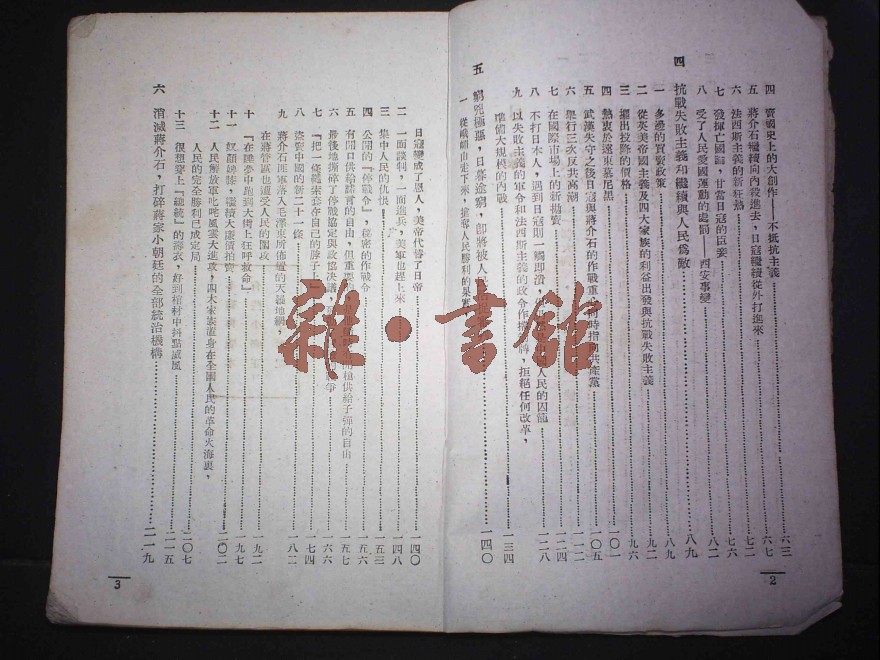 四 賣國史上的大創作——不抵抗主義……六三
五 蔣介石繼續向內殺進去，日寇繼續從外打進來……六七
六 法西斯主義的新杯
七 發揮亡國論，甘當日寇的臣妾……七六
八 受了人民愛國運動的處罰——西安事變……八二
四 抗戰失敗主義和繼續與人民爲敵……八九
一 多邊的買賣政策……八九
二 從英美帝國主義及四大家族的利益出發與抗戰失敗主義……九二
三 擺出投降的價格……九六
四 熱衷於遠東慕尼黑……一〇一
五 武漢失守之後日寇與蔣介石的作戰重 時指 共產黨……一〇五
六 舉行三次反共高潮……一一二
七 在國際市場上的新拍賣……一二四
八 不打日本人，遇到日寇則一觸即潰， 人民的囚籠……一二八
九 以失敗主義的軍令和法西斯主義的政令作擋 牌，拒絕任何改革，
準備大規模的內戰……一三四
五 窮兇極惡，日暮途窮，即將被人……一四〇
一 從峨嵋山走下來，搶奪人民勝利的果實
日寇變成了恩人，美帝代替了日帝……一四〇
二 一面談判，一面進兵，美軍也趕上來……一四八
三 集中人民的仇恨……一五三
四 公開的『停戰令』，秘密的作戰令……一五六
五 有開口供給諾言的自由，但重要的 開槍供給子彈的自由……一五七
六 最後地撕碎了停戰協定與政協決議， 爭……一六六
七 『把一條繩索套在自己的脖子上』……一七四
八 盜賣中國的新二十一條……一八二
九 蔣介石匪軍落入毛澤東所佈置的天羅地網，
在蔣管區也遭受人民的圍攻……一九二
十 『在睡夢中跑到大街上狂呼救命』……一九七
十一 奴顏 膝，繼續大廉價拍賣……二〇二
十二 人民解放軍叱咤風雲大進攻，四大家族置身在全國人民的革命火海裏，
人民的完全勝利已成定局……二〇七
十三 很想穿上『總統』的壽衣，好到棺材中抖點威風……二一五
六 消滅蔣介石，打碎蔣家小朝廷的全部統治機構……二一九
2
3
雜·書館